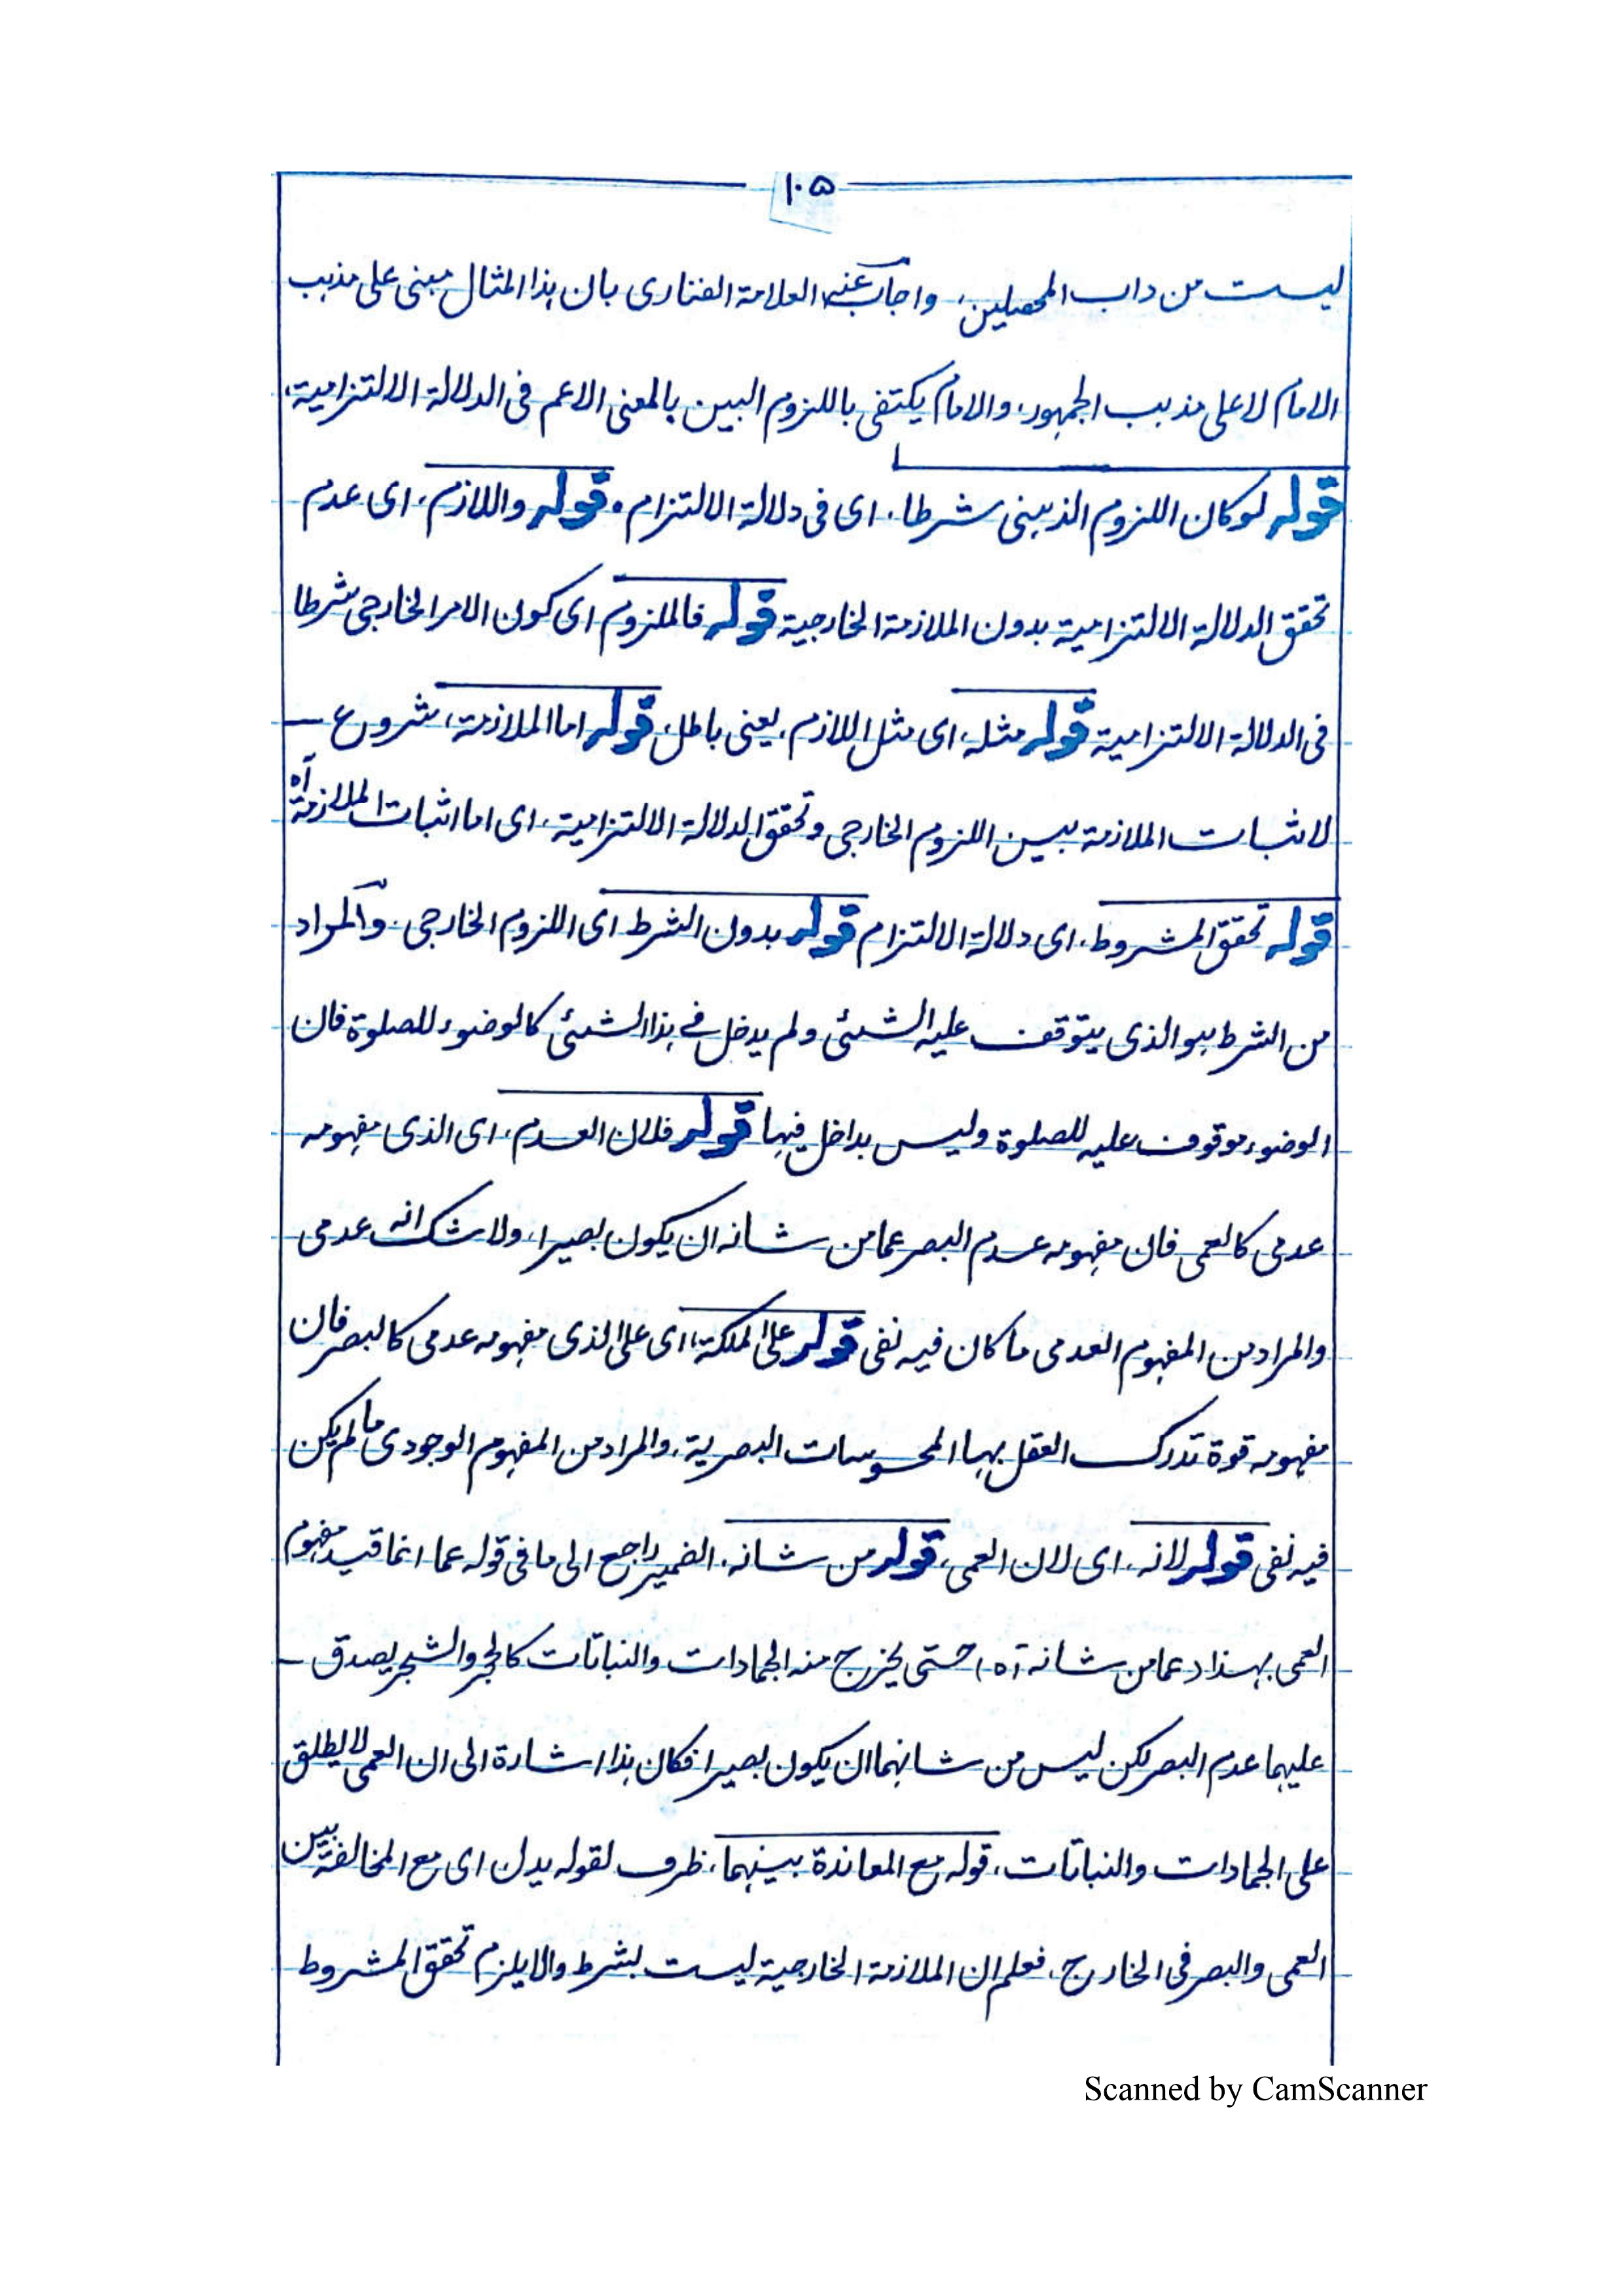 ١٠٥
ليست من داب المحصلين، واجاب عنه العلامة الفنارى بان هذا المثال مبنى على مذهب
الامام لا على مذهب الجمهور، والامام يكتفى باللزوم البين بالمعنى الاعم فى الدلالة الالتزامية،
قوله لو كان اللزوم الذهنى شرطا، اى فى دلالة الالتزام، قوله واللازم، اى عدم
تحقق الدلالة الالتزامية بدون الملازمة الخارجية قوله فالملزوم اى كون الامر الخارجى شرطا
فى الدلالة الالتزامية قوله مثله، اى مثل اللازم، يعنى باطل، قوله اما الملازمة، شروع
لاثبات الملازمة بين اللزوم الخارجى وتحقق الدلالة الالتزامية، اى اما اثبات الملازمة آه
قوله تحقق المشروط، اى دلالة الالتزام قوله بدون الشرط اى اللزوم الخارجى، والمراد
من الشرط هو الذى يتوقف عليه الشئى ولم يدخل فى هذا الشئى كالوضوء للصلوة فان
الوضوء موقوف عليه للصلوة وليس بداخل فيها قوله فلان العدم، اى الذى مفهومه
عدمى كالعمى فان مفهومه عدم البصر عما من شانه ان يكون بصيرا، ولا شك انه عدمى
والمراد من المفهوم العدمى ما كان فيه نفى قوله على الملكة، اى على الذى مفهومه عدمى كالبصر فان
مفهومه قوة تدرك العقل بها المحسوسات البصرية، والمراد من المفهوم الوجودى ما لم يكن
فيه نفى قوله لانه، اى لان العمى، قوله من شانه، الضمير راجع الى ما فى قوله عما انما قيد مفهوم
العمى بهذا (عما من شانه آه) حتى يخرج منه الجمادات والنباتات كالحجر والشجر يصدق
عليهما عدم البصر لكن ليس من شانهما ان يكون بصيرا فكان هذا اشارة الى ان العمى لا يطلق
على الجمادات والنباتات، قوله مع المعاندة بينهما، ظرف لقوله يدل اى مع المخالفة بين
العمى والبصر فى الخارج، فعلم ان الملازمة الخارجية ليست بشرط والا يلزم تحقق المشروط
Scanned by CamScanner